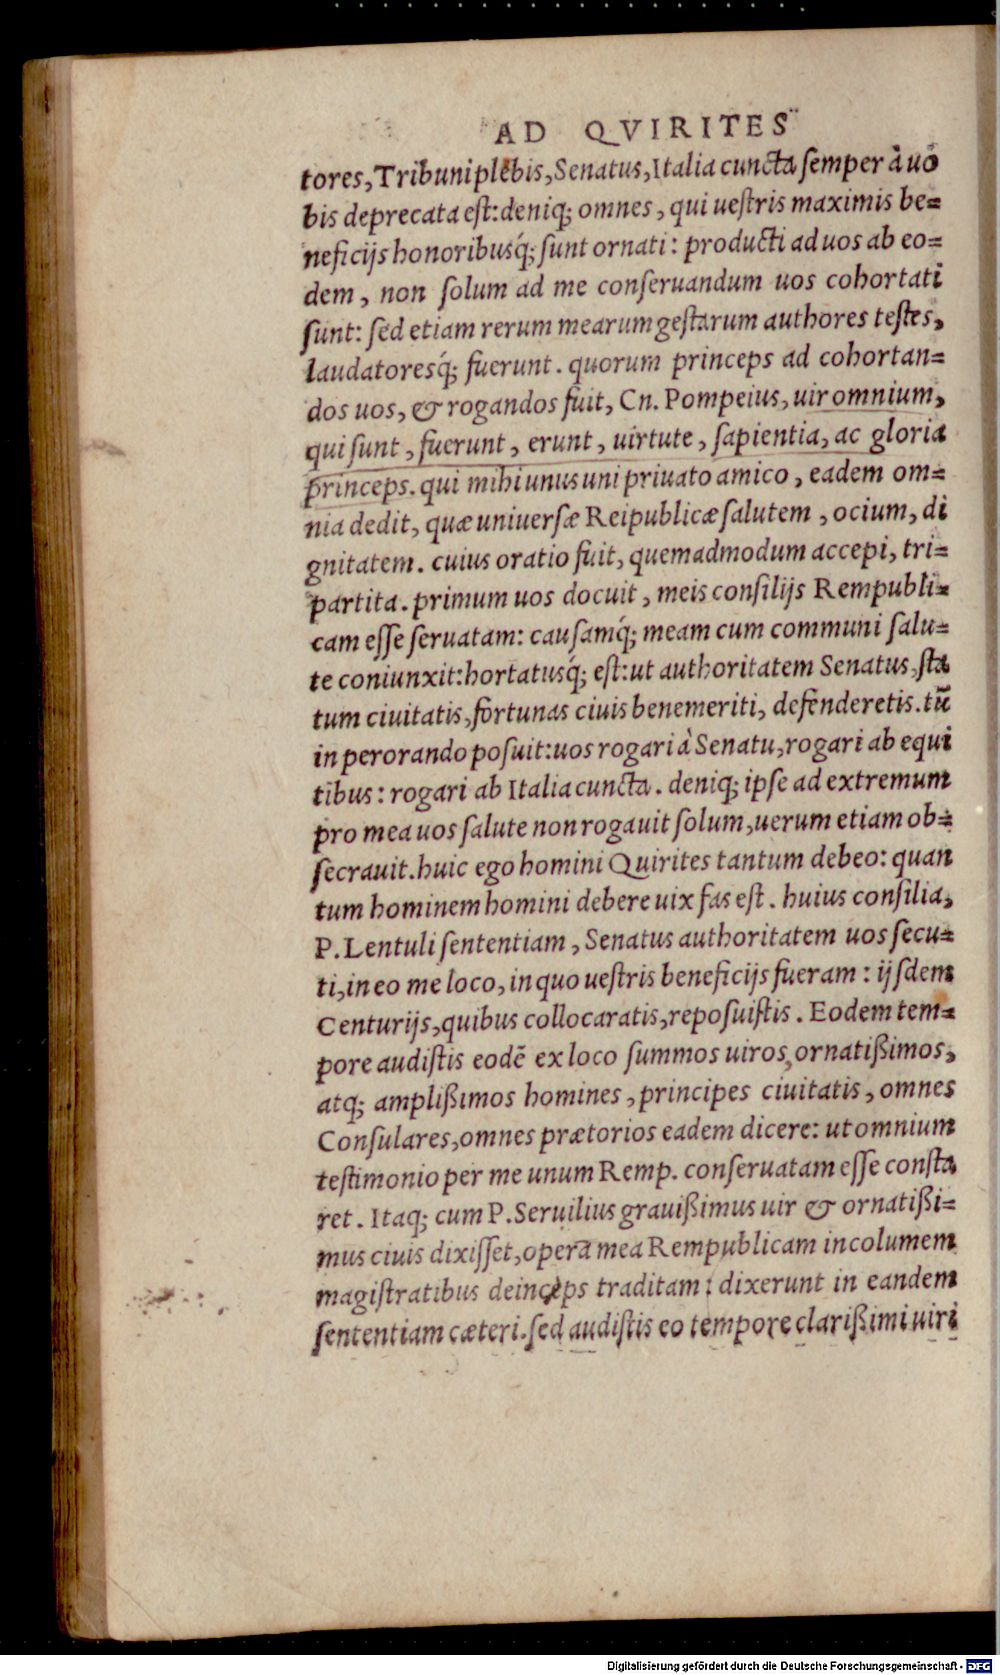 AD QVIRITES
tores, Tribuni plebis, Senatus, Italia cuncta ſemper à uo
bis deprecata eſt: deniq; omnes, qui ueſtris maximis be=
neficijs honoribusq́; ſunt ornati: producti ad uos ab eo=
dem, non ſolum ad me conſeruandum uos cohortati
ſunt: ſed etiam rerum mearum geſtarum authores teſtes,
laudatoresq́; fuerunt. quorum princeps ad cohortan=
dos uos, & rogandos fuit, Cn. Pompeius, uir omnium,
qui ſunt, fuerunt, erunt, uirtute, ſapientia, ac gloria
princeps. qui mihi unus uni priuato amico, eadem om=
nia dedit, quæ uniuerſæ Reipublicæ ſalutem, ocium, di
gnitatem. cuius oratio fuit, quemadmodum accepi, tri=
partita. primum uos docuit, meis conſilijs Rempubli=
cam eſſe ſeruatam: cauſamq́; meam cum communi ſalu=
te coniunxit: hortatusq́; eſt: ut authoritatem Senatus, ſta
tum ciuitatis, fortunas ciuis benemeriti, defenderetis. tū
in perorando poſuit: uos rogari à Senatu, rogari ab equi
tibus: rogari ab Italia cuncta. deniq; ipſe ad extremum
pro mea uos ſalute non rogauit ſolum, uerum etiam ob=
ſecrauit. huic ego homini Quirites tantum debeo: quan
tum hominem homini debere uix fas eſt. huius conſilia,
P. Lentuli ſententiam, Senatus authoritatem uos ſecu=
ti, in eo me loco, in quo ueſtris beneficijs fueram: ijſdem
Centurijs, quibus collocaratis, repoſuiſtis. Eodem tem=
pore audiſtis eodē ex loco ſummos uiros, ornatißimos,
atq; amplißimos homines, principes ciuitatis, omnes
Conſulares, omnes prætorios eadem dicere: ut omnium
teſtimonio per me unum Remp. conſeruatam eſſe conſta
ret. Itaq; cum P. Seruilius grauißimus uir & ornatißi=
mus ciuis dixiſſet, opera mea Rempublicam incolumem
magiſtratibus deinceps traditam: dixerunt in eandem
ſententiam cæteri. ſed audiſtis eo tempore clarißimi uiri
Digitalisierung gefördert durch die Deutsche Forschungsgemeinschaft - DFG